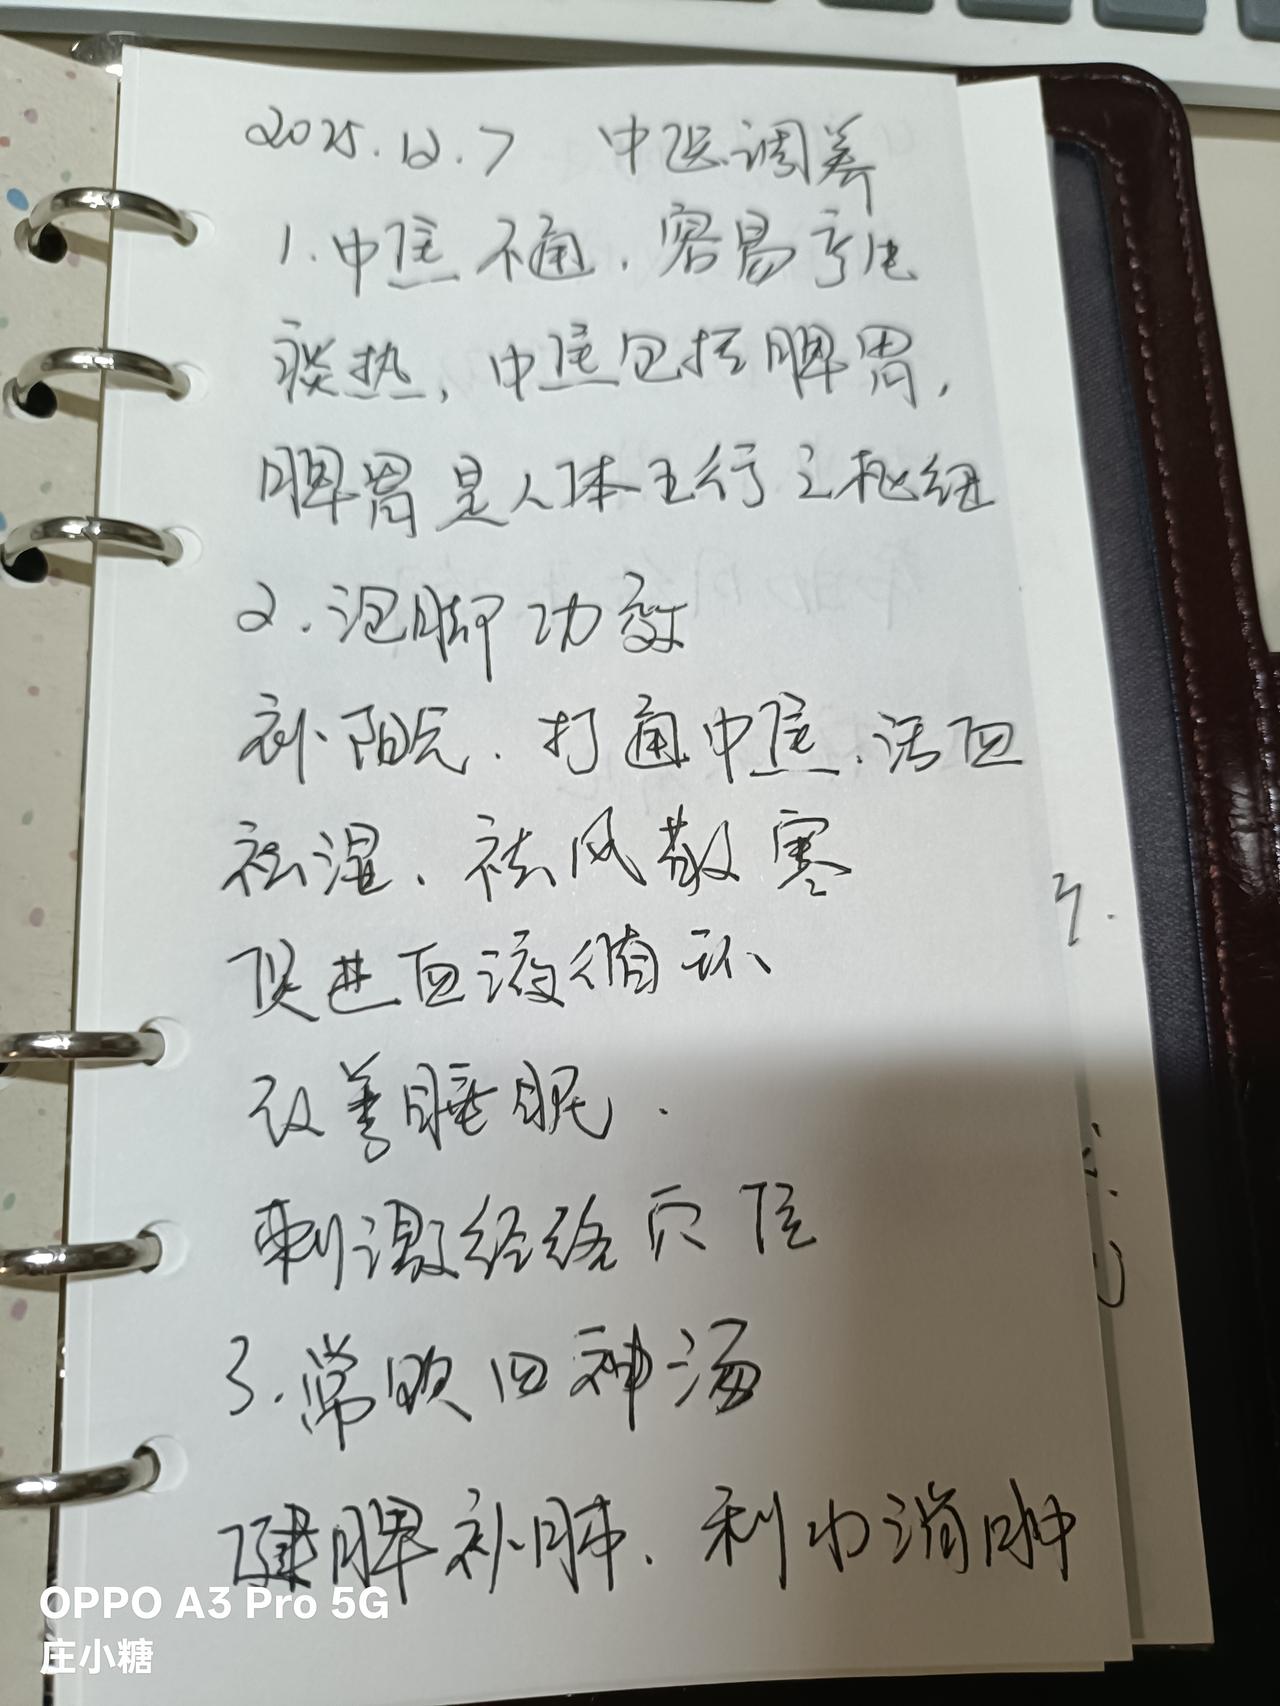 2025.12.7 中医调养
1.中焦不通,容易亏虚
痰热,中焦包括脾胃,
脾胃是人体五行之枢纽
2.泡脚功效
补阳气.打通中焦.活血
祛湿、祛风散寒
促进血液循环
改善睡眠.
刺激经络穴位
3.常饮四神汤
健脾补肺.利水消肿
OPPO A3 Pro 5G
庄小糖